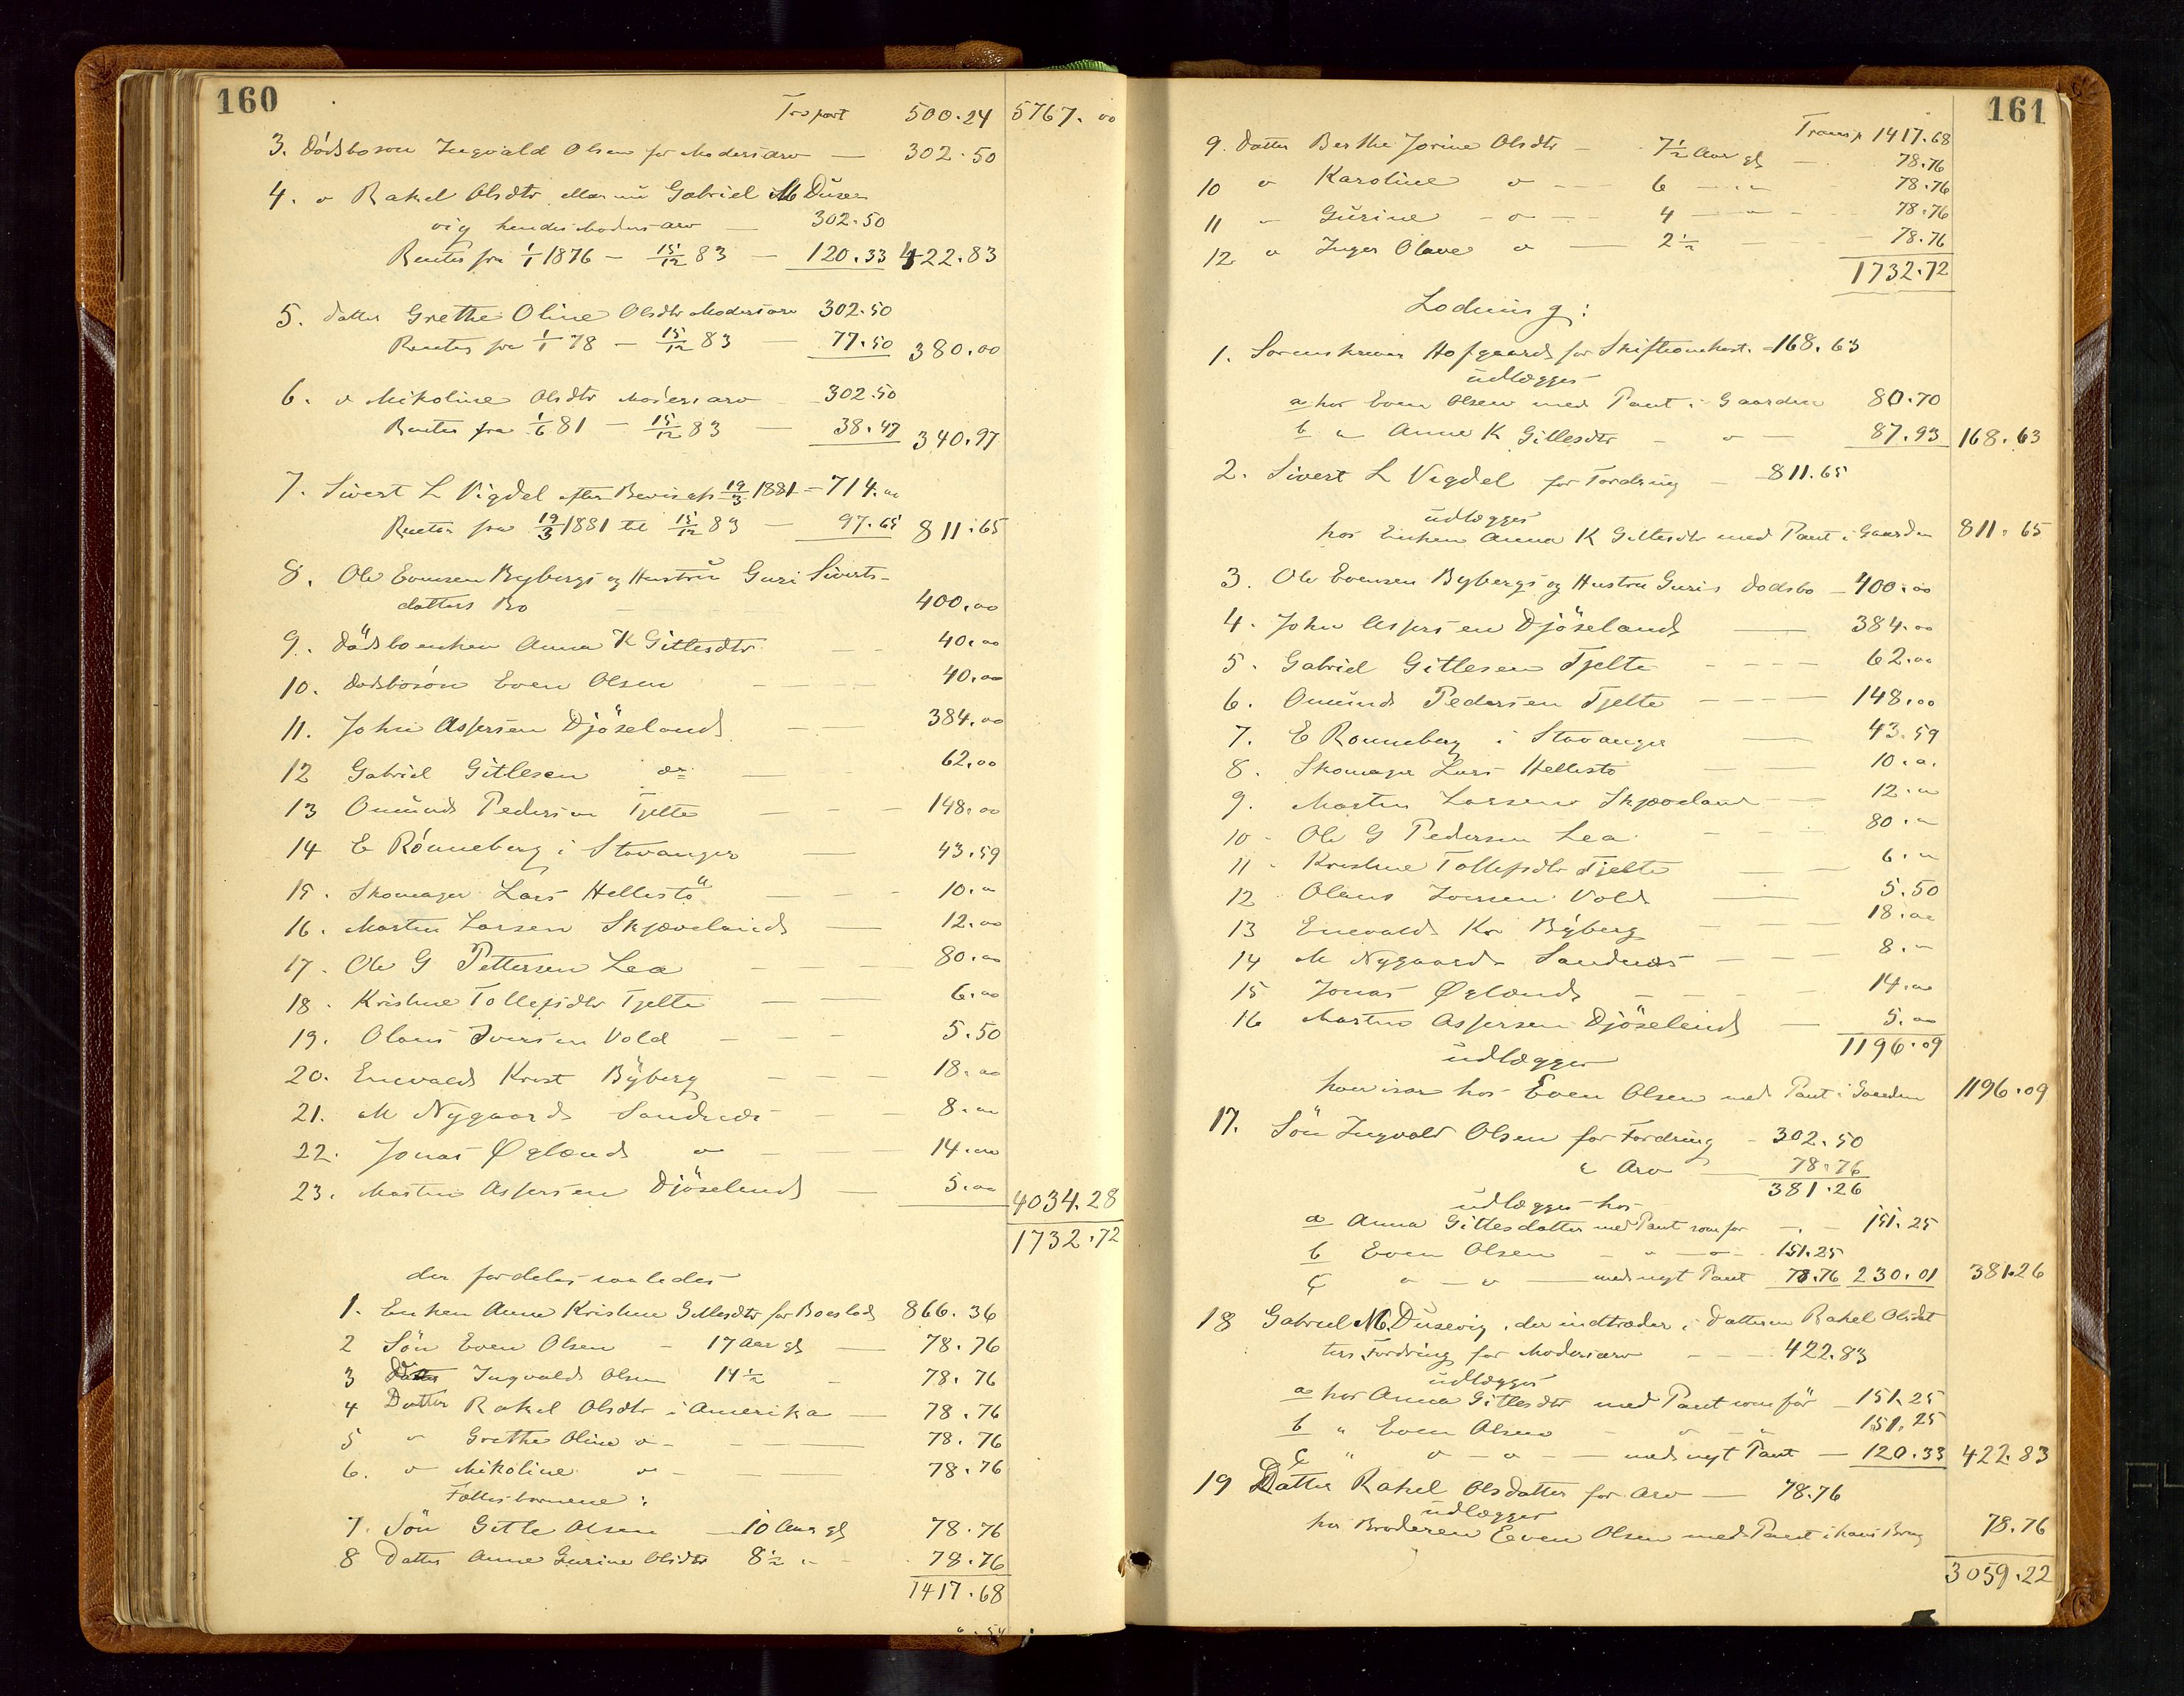 160
Trsport 500.24 5767.00
3. Dödsboson Ingvald Olsen for Modersarv — 302.50
4. " Rakel Olsdtr nu Gabriel M Duse
vig hendes Modersarv — 302.50
Renter fra 1/1 1876 — 15/12 83 — 120.33 422.83
5. Datter Grethe Oline Olsdtr Modersarv 302.50
Renter fra 1/1 78 — 15/12 83 — 77.50 380.00
6. " Mikoline Olsdtr Modersarv 302.50
Renter fra 1/6 81 — 15/12 83 — 38.47 340.97
7. Sivert L Vigdel efter Bevis af 19/3 1881 = 714.00
Renter fra 19/3 1881 til 15/12 83 — 97.65 811.65
8. Ole Evensen Bybergs og Hustru Guri Siverts-
datters Bo 400.00
9. Dödsboenken Anna K Gitlesdtr 40.00
10. Dödsbosön Even Olsen 40.00
11. John Aspersen Djöseland 384.00
12 Gabriel Gitlesen do 62.00
13 Omund Pedersen Tjelte 148.00
14 E Rönneberg i Stavanger 43.59
15. Skomager Lars Hellestö 10.00
16. Martin Larsen Skjæveland 12.00
17. Ole G Pettersen Lea 80.00
18. Kristine Tollefsdtr Tjelte 6.00
19. Olaus Iversen Vold 5.50
20. Enevald Krist Byberg 18.00
21. M Nygaard Sandnæs 8.00
22. Jonas Øglænd " 14.00
23. Martin Aspersen Djöseland 5.00 4034.28
1732.72
der fordeles saaledes
1. Enken Anne Kristine Gitlesdtr for Boeslod 866.36
2 Sön Even Olsen – 17 Aar gl — 78.76
3 Ingvald Olsen 14½ - 78.76
4 Datter Rakel Olsdtr i Amerika — 78.76
5 " Grethe Oline " — 78.76
6. " Mikoline " — 78.76
Fællesbørnene:
7. Sön Gitle Olsen — 10 Aar gl 78.76
8 Datter Anne Gurine Olsdtr 8½ " 78.76
1417.68
161
Transp 1417.68
9. Datter Berthe Jorine Olsdtr – 7½ Aar gl — 78.76
10 " Karoline " — 6 — " 78.76
11 " Gurine " — 4 — " 78.76
12. " Inger Olave " — 2½ 78.76
1732.72
Lodning:
1. Sorenskriver Hofgaard for Skifteomkost. – 168.63
udlægges
a hos Even Olsen med Pant i Gaarden 80.70
b " Anne K Gitlesdtr – " — 87.93 168.63
2. Sivert L Vigdel for Fordring — 811.65
udlægges
hos Enken Anna K Gitlesdtr med Pant i Gaarden 811.65
3. Ole Evensen Bybergs og Hustru Guris Dödsbo – 400.00
4. John Aspersen Djöseland — 384.00
5. Gabriel Gitlesen Tjelte 62.00
6. Omund Pedersen Tjelte 148.00
7. E Ronneberg i Stavanger 43.59
8. Skomager Lars Hellestö 10.00
9. Martin Larsen Skjæveland 12.00
10. Ole G Pedersen Lea 80.00
11. Kristine Tollefsdtr Tjelte 6.00
12 Olaus Iversen Vold 5.50
13 Enevald Kr Byberg 18.00
14 M Nygaard Sandnæs 8.00
15 Jonas Øglænd 14.00
16 Martin Aspersen Djöseland — 5.00
1196.09
udlægges
hos Even Olsen med Pant i Gaarden 1196.09
17. Sön Ingvald Olsen for Fordring – 302.50
" Arv — 78.76
381.26
udlægges hos
a Anna Gitlesdatter med Pant som før — 151.25
b Even Olsen – " — " 151.25
c " — " — med nyt Pant 78.76 230.01 381.26
18 Gabriel M. Dusevig, der indtræder i Datteren Rakel Olsdat
ters Fordring for Modersarv — 422.83
udlægges
a hos Anna Gitlesdtr med Pant som før — 151.25
b " Even Olsen — " — " 151.25
c " " — " — med nyt Pant — 120.33 422.83
19 Datter Rakel Olsdatter for Arv — 78.76
udlægges
hos Broderen Even Olsen med Pant i hans Brug 78.76
3059.22